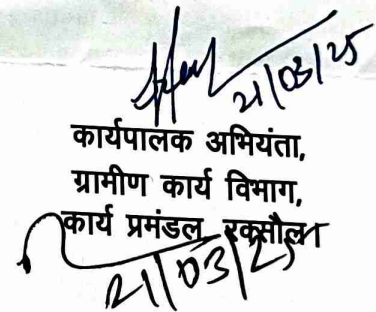 21/03/25
कार्यपालक अभियंता,
ग्रामीण कार्य विभाग,
कार्य प्रमंडल, रक्सौल।
21/03/25